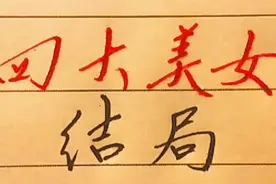 四大美女
结局